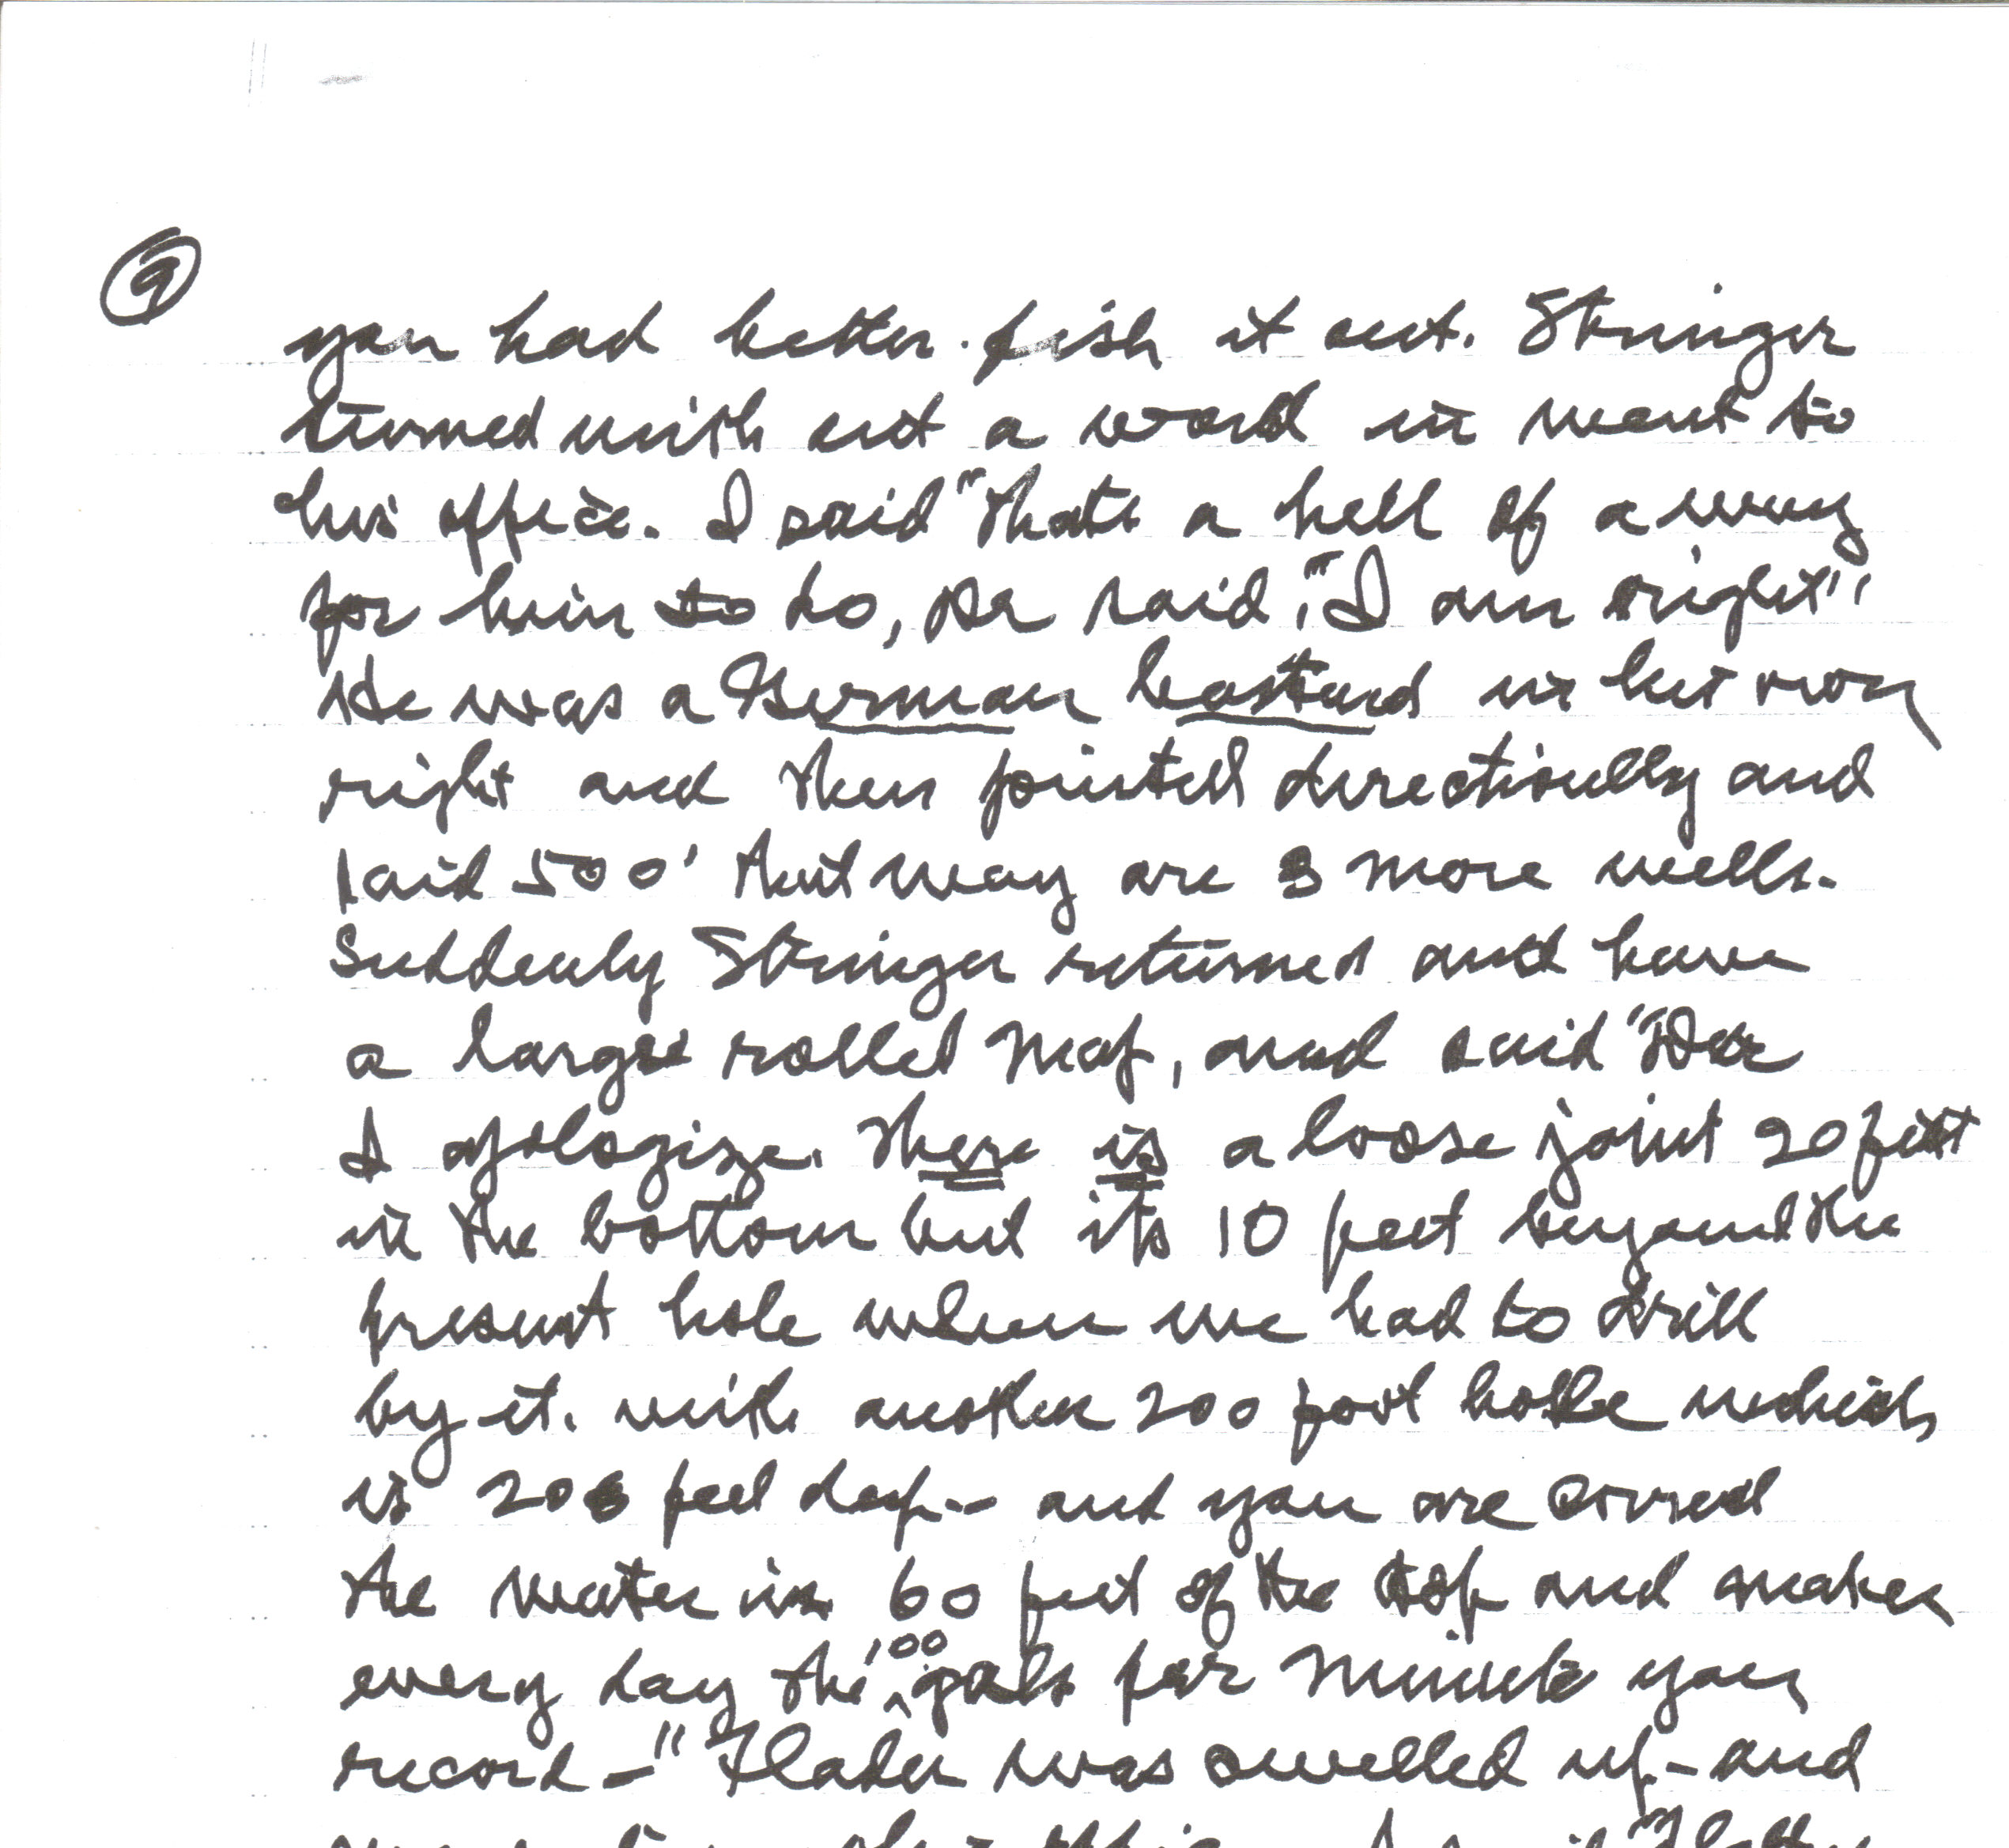 9
you had better fish it out. Stringer
turned with out a word in went to
his office. I said "thats a hell of a way
for him to do, He said, "I am right"
He was a German bastard in his own
right and then pointed directionally and
said 500' that way are 3 more wells.
Suddenly Stringer returned and have
a large rolled map, and said "
I apologize. There is a loose joint 20 feet
in the bottom but its 10 feet beyond the
present hole when we had to drill
by it. with another 200 foot hole which
is 20 feet deep - and you are
the water in 60 feet of the top and makes
every day the 100 gals per minute you
record - " Flader was swelled up - and